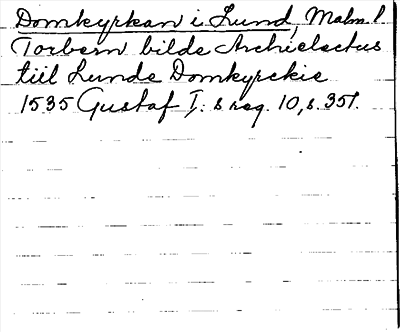 Domkyrkan i Lund, Malm. l
Torbern bilde Archielectus
till Lunde Domkyrckie
1535 Gustaf I: s reg. 10, s. 351.